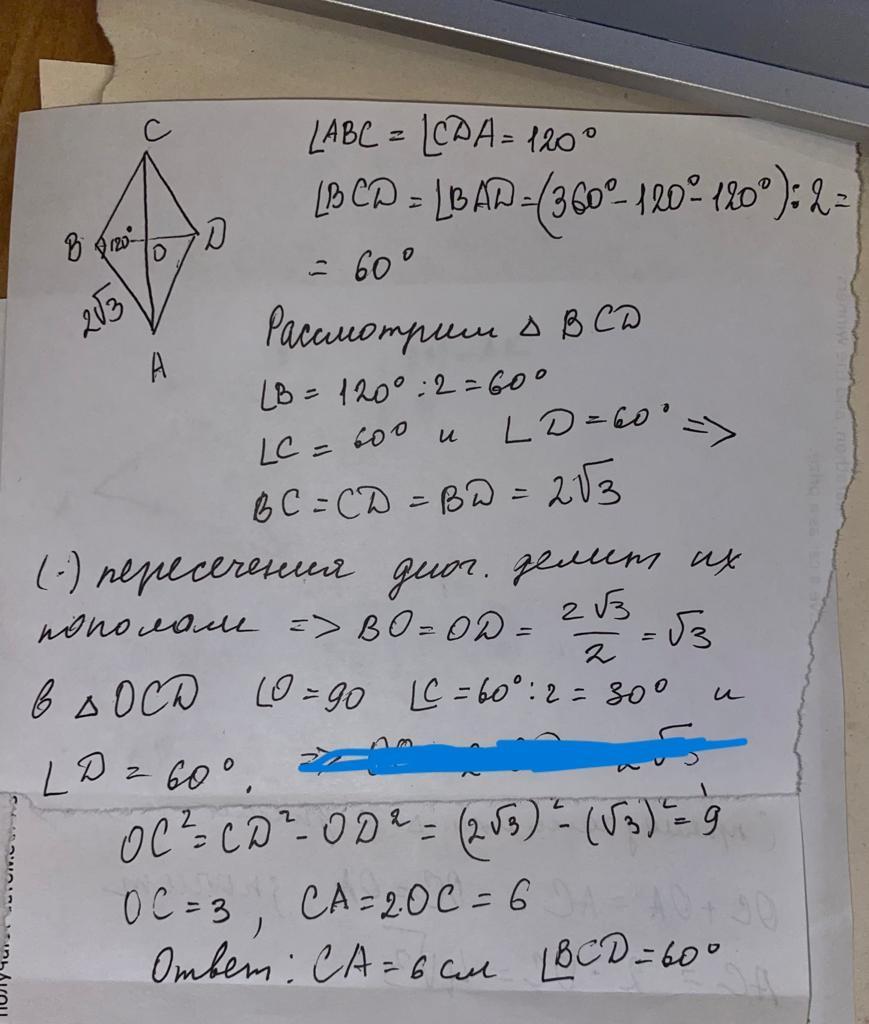 C
B 120° O D
2√3
A
∠ABC = ∠CDA = 120°
∠BCD = ∠BAD = (360° - 120° - 120°) : 2 =
= 60°
Рассмотрим △ BCD
∠B = 120° : 2 = 60°
∠C = 60° и ∠D = 60° =>
BC = CD = BD = 2√3
(·) пересечения диог. делит их
пополам => BO = OD = 2√3/2 = √3
в △ OCD ∠O = 90 ∠C = 60° : 2 = 30° и
∠D = 60°.
OC² = CD² - OD² = (2√3)² - (√3)² = 9
OC = 3, CA = 2·OC = 6
Ответ: CA = 6 см ∠BCD = 60°